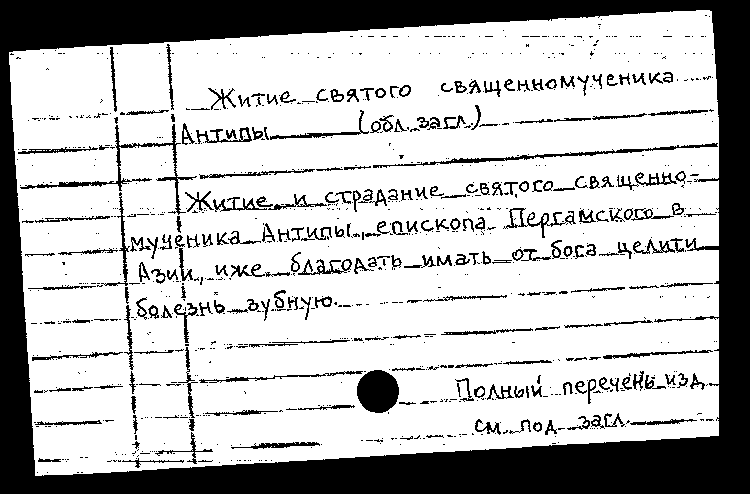 Житие святого священномученика
Антипы (обл. загл.)
Житие и страдание святого священно-
мученика Антипы, епископа Пергамского в
Азии, иже благодать имать от бога целити
болезнь зубную.
Полный перечень изд.
см. под загл.